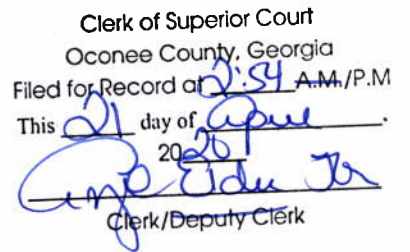 Clerk of Superior Court
Oconee County, Georgia
Filed for Record at 2:54 A.M./P.M
This 21 day of April.
2020
Clerk/Deputy Clerk